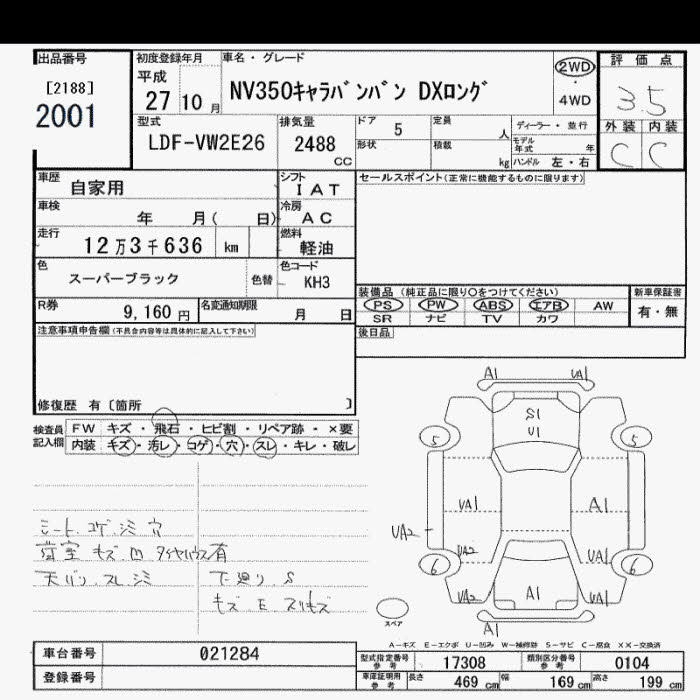 出品番号
[2188]
2001
初度登録年月
平成
27 10 月
車名・グレード
NV350キャラバンバン DXロング
2WD
・
4WD
評価点
3.5
外装 内装
C C
型式
LDF-VW2E26
排気量
2488
CC
ドア 5
定員 人
形状
積載 kg
ディーラー・並行
モデル年式 年
ハンドル 左・右
車歴 自家用
シフト IAT
車検 年 月( 日)
冷房 AC
走行 12万3千636 km
燃料 軽油
色 スーパーブラック
色替
色コード KH3
R券 9,160円
名変通知期限 月 日
セールスポイント(正常に機能するものに限ります)
装備品(純正品に限り○をつけてください)
PS PW ABS エアB AW
SR ナビ TV カワ
新車保証書
有・無
後日品
注意事項申告欄(不具合内容等は具体的に記入して下さい)
修復歴 有〔箇所 〕
検査員記入欄
FW キズ・飛石・ヒビ割・リペア跡・×要
内装 キズ・汚レ・コゲ・穴・スレ・キレ・破レ
シート コゲ シミ 穴
荷室 キズ M タイヤハウス有
天バリ スレ シミ
下廻り S
キズ E スリキズ
A1 UA1
S1
U1
5 5
UA1 A1
UA2
UA2 UA1
6 6
UA2 A1 UA1
A1
スペア
A-キズ E-エクボ U-凹み W-補修跡 S-サビ C-腐食 XX-交換済
車台番号 021284
登録番号
型式指定番号 参考 17308
類別区分番号 参考 0104
車庫証明用 参考
長さ 469 cm 幅 169 cm 高さ 199 cm